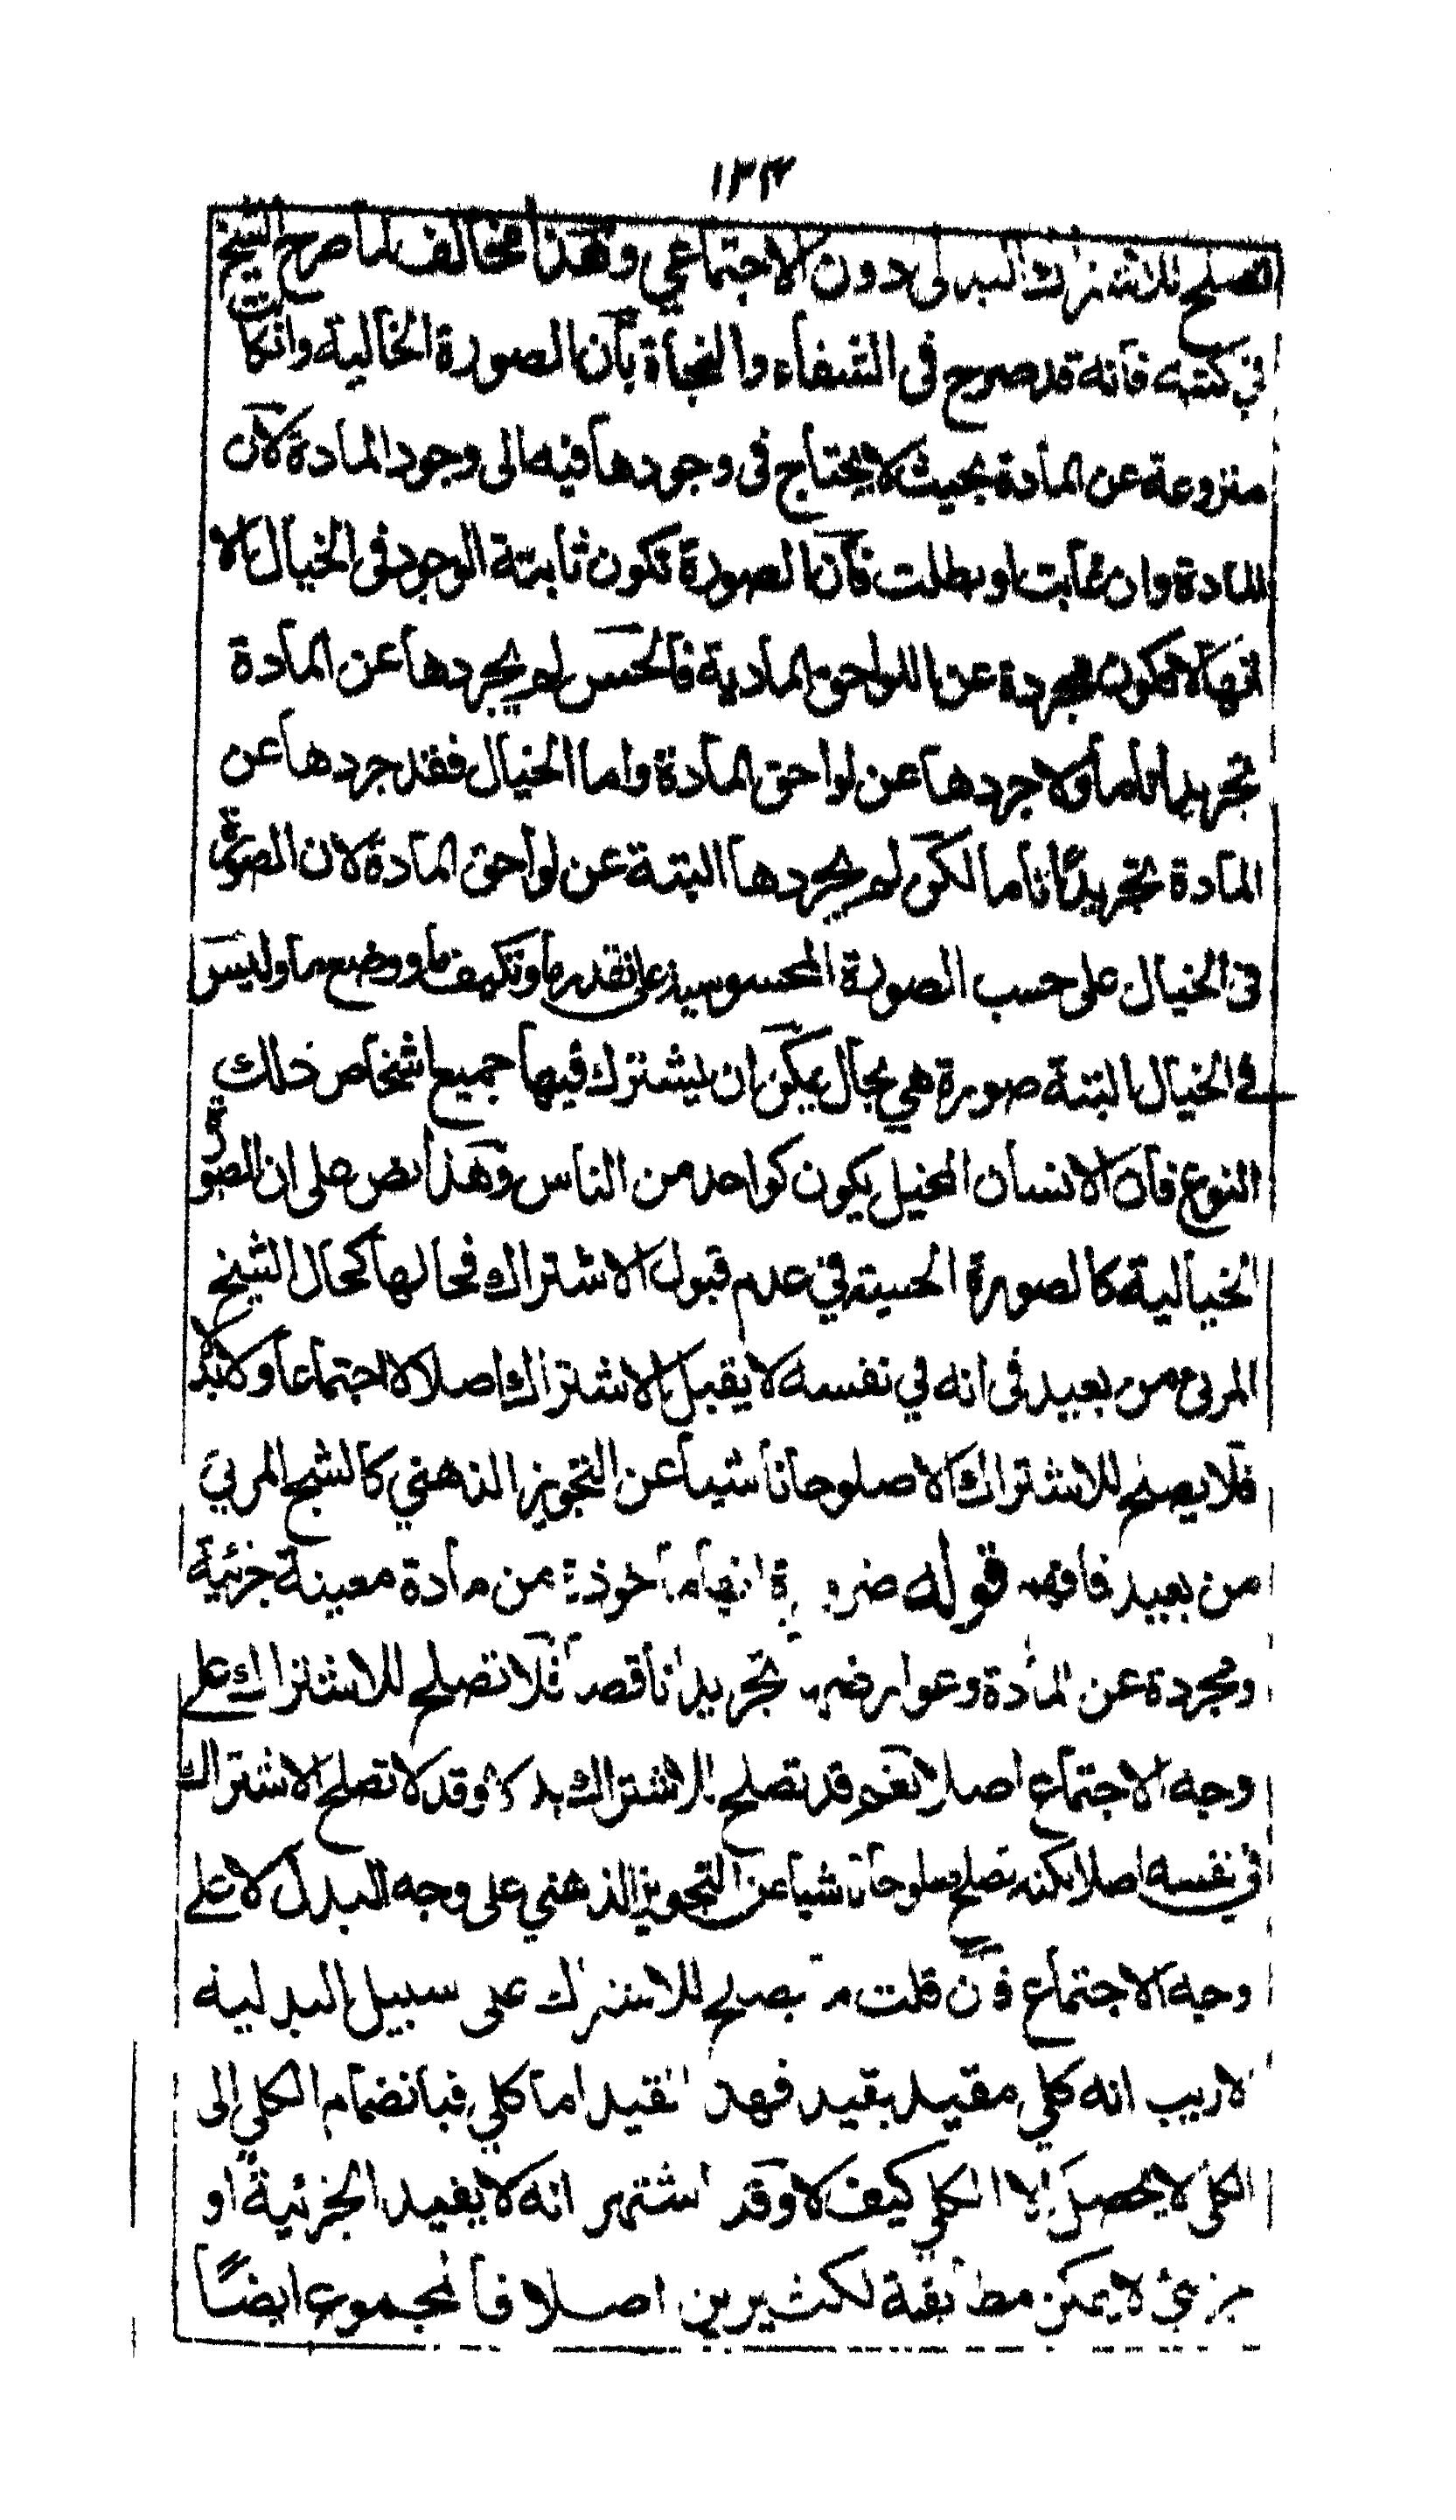 ١٣٤
تصلح للاشتراك البدلى دون الاجتماعي وهذا مخالف لما صرح الشيخ
في كتبه فانه قد صرح فى الشفاء والنجاة بان الصورة الخالية وانكانت
منزوعة عن المادة بحيث لا يحتاج فى وجودها فيه الى وجود المادة لان
المادة وان غابت او بطلت فان الصورة تكون ثابتة الوجود فى الخيال الا
انها لا تكون مجردة عن اللواحق المادية فالحس لم يجردها عن المادة
تجريدا تاما ولا جردها عن لواحق المادة واما الخيال فقد جردها عن
المادة تجريدًا تاما لكن لم يجردها البتة عن لواحق المادة لان الصورة
فى الخيال على حسب الصورة المحسوسة على تقدير ما وتكيف ما ووضع ما وليس
فى الخيال البتة صورة هي بحال يمكن ان يشترك فيها جميع اشخاص ذلك
النوع فان الانسان المخيل يكون كواحد من الناس وهذا نص على ان الصورة
الخيالية كالصورة الحسية في عدم قبول الاشتراك فحالها كحال الشبح
المرئ من بعيد فى انه في نفسه لا يقبل الاشتراك اصلا لا اجتماعا ولا بدلا
فلا يصلح للاشتراك الا صلوحا ناشيا عن التجويز الذهني كالشبح المربي
من بعيد فافهم قوله ضرورة انها ماخوذة من مادة معينة جزئية
ومجردة عن المادة وعوارضها تجريدا ناقصا فلا تصلح للاشتراك على
وجه الاجتماع اصلا نعم قد تصلح للاشتراك بدلا وقد لا تصلح الاشتراك
في نفسه اصلا لكنه تصلح صلوحا ناشيا عن التجويز الذهني على وجه البدل لا على
وجه الاجتماع فان قلت ما يصلح للاشتراك على سبيل البدلية
لا ريب انه كلي مقيد بقيد فهذا القيد اما كلي فبانضمام الكلي الى
الكلي لا يحصل الا الكلي كيف لا وقد اشتهر انه لا يفيد الجزئية او
جزئي لا يمكن مطابقة لكثيرين اصلا فالمجموع ايضًا